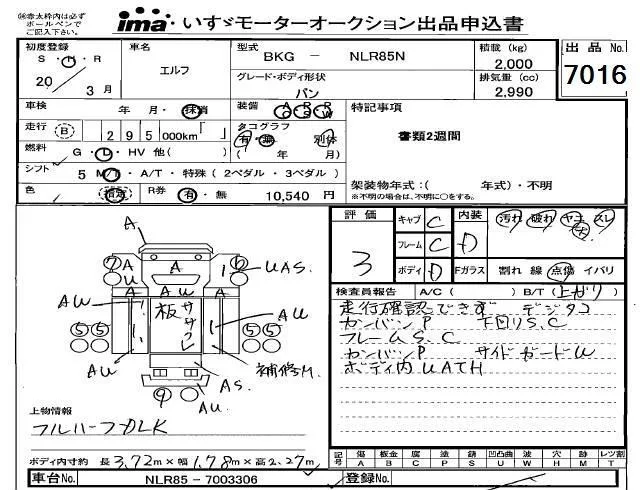 ㊟赤太枠内は必ず
ボールペンで
ご記入下さい。
ima いすゞモーターオークション出品申込書
初度登録
S・H・R
20 3月
車名
エルフ
型式
BKG － NLR85N
グレード・ボディ形状
バン
積載(kg)
2,000
排気量(cc)
2,990
出品No.
7016
車検 年 月・抹消
装備
走行 B 295 000km
タコグラフ
有・無 別体
( 年 月)
燃料 G・D・HV 他( )
シフト 5 M/T・A/T・特殊(2ペダル・3ペダル)
色 R券 有・無 10,540円
特記事項
書類2週間
架装物年式:( 年式)・不明
※不明の場合は、不明に○をする。
評価
3
キャブ C
フレーム C
ボディ D
内装 D
汚れ 破れ ヤキ スレ
大
Fガラス 割れ 線 点傷 イバリ
検査員報告 A/C( ) B/T(上がり)
走行確認できず デジタコ
カンバンP 下回りS.C
フレームS.C
カンバンP サイドガードU
ボディ内UATH
A
⑦ A A 1 ⑥ UAS.
U
A A U A
AU AU
板 ササクレ
⑤⑤ ⑤⑤
AU 補修M.
AS.
⑨ AU
上物情報
フルハーフDLK
ボディ内寸約 長3.72m×幅1.78m×高2.27m
記号 傷 板金 腐 塗 錆 凹凸曲 穴 時 レツ割
A B C P S U W H M T
車台No. NLR85－7003306 登録No.